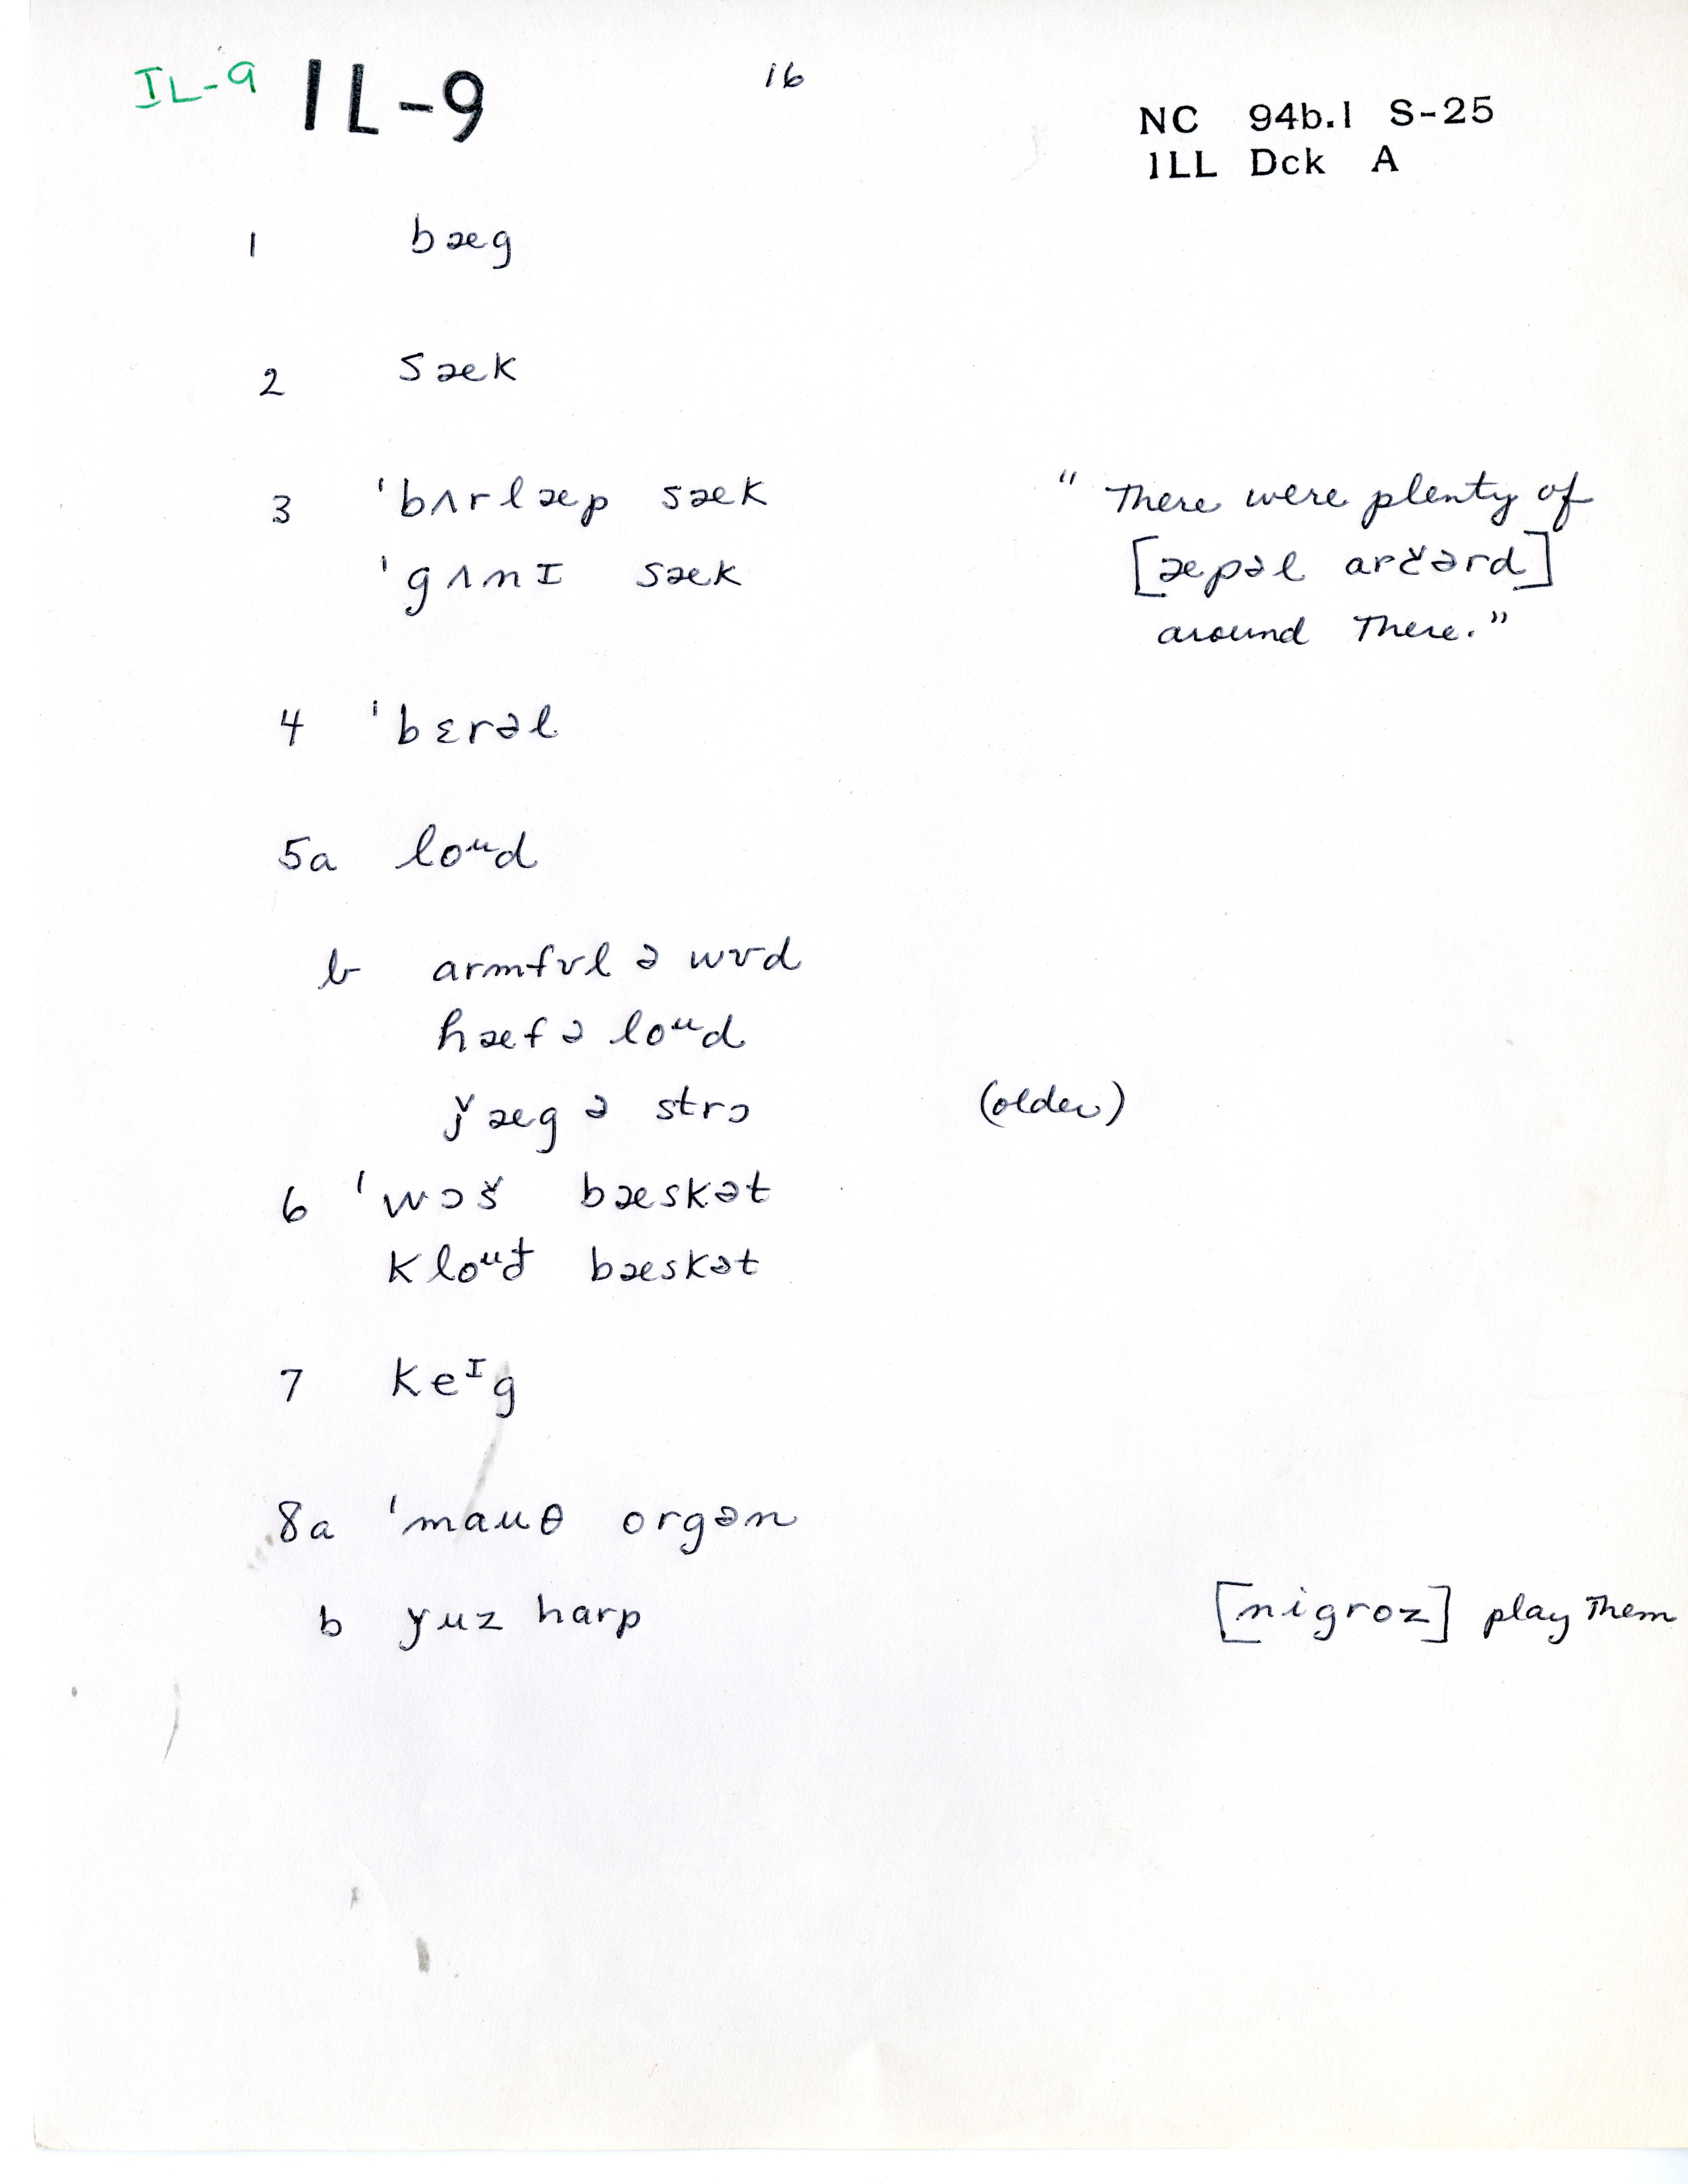 IL-9 IL-9 16
NC 94b.1 S-25
ILL Dck A
1 bæg
2 sæk
3 ˈbʌrlæp sæk " There were plenty of
ˈgʌnɪ sæk [æpəl arčərd]
around there."
4 ˈbɛrəl
5a loᵘd
b armfʊl ə wʊd
hæf ə loᵘd
ǰæg ə strɔ (older)
6 ˈwɔš bæskət
bæskət
7 keᴵg
8a ˈmauθ orgən
b harp [nigroz] play them